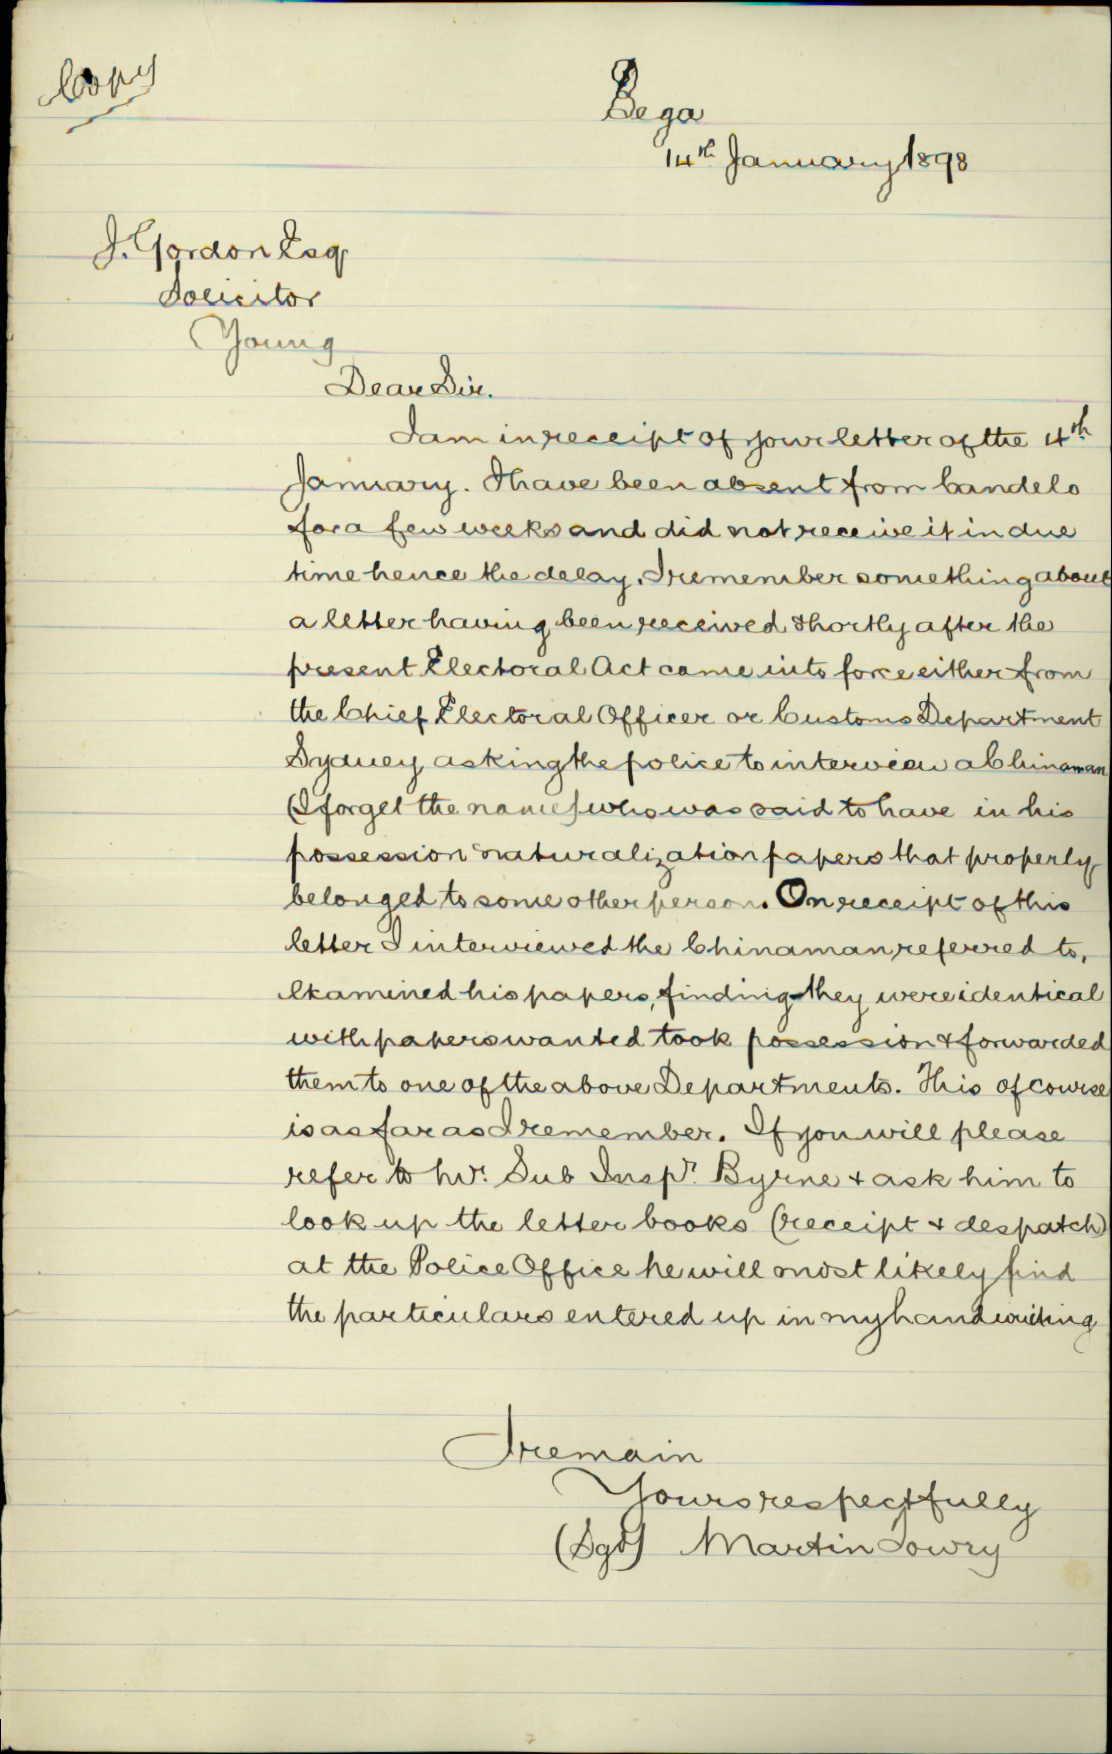 Copy
Bega
14th January 1898
J. Gordon Esq
Solicitor
Young
Dear Sir.
I am in receipt of your letter of the 4th
January. I have been absent from Candelo
for a few weeks and did not receive it in due
time hence the delay. I remember something about
a letter having been received shortly after the
present Electoral Act came into force either from
the Chief Electoral Officer or Customs Department
Sydney asking the police to interview a Chinaman
(I forget the name) who was said to have in his
possession naturalization papers that properly
belonged to some other person. On receipt of this
letter I interviewed the Chinaman referred to,
examined his papers, finding they were identical
with papers wanted took possession & forwarded
them to one of the above Departments. This of course
is as far as I remember. If you will please
refer to Mr. Sub Inspr. Byrne & ask him to
look up the letter books (receipt & despatch)
at the Police Office he will most likely find
the particulars entered up in my handwriting
I remain
Yours respectfully
(Sgd) Martin Lowry